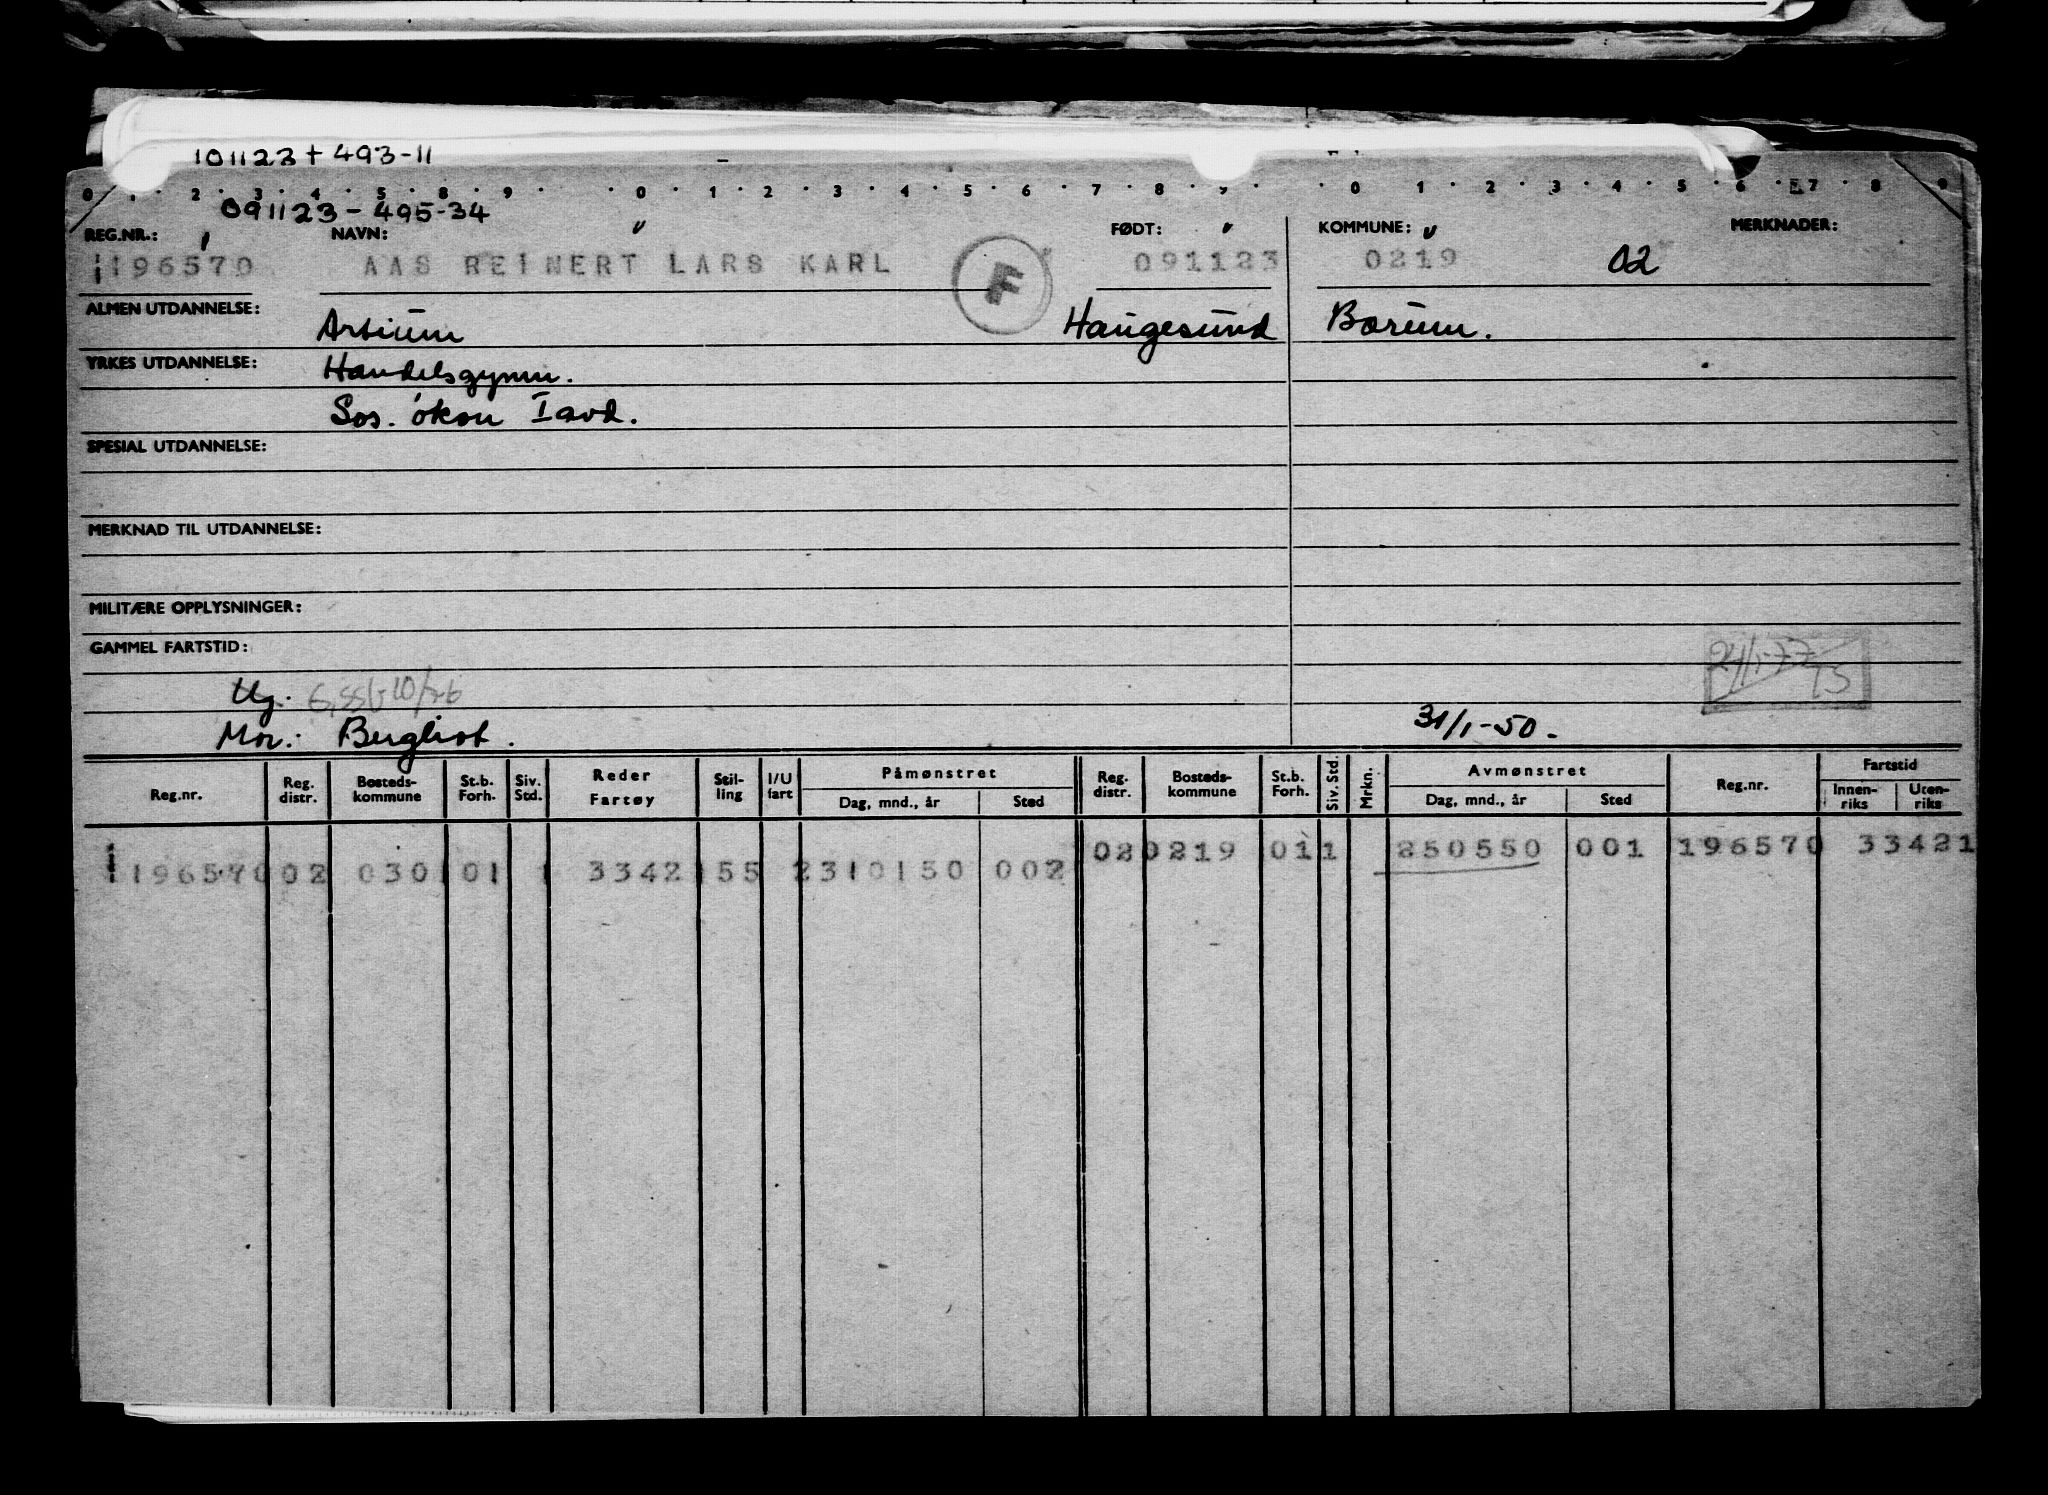 101123 + 493-11
0 . 2 . 3 . 4 . 5 . 8 . 9 . 0 . 1 . 2 . 3 . 4 . 5 . 6 . 7 . 8 . 9 . 0 . 1 . 2 . 3 . 4 . 5 . 6 . 7 . 8 . 9
091123 - 495-34
REG.NR.: NAVN: FØDT: KOMMUNE: MERKNADER:
196570 AAS REINERT LARS KARL F 091123 0219 02
ALMEN UTDANNELSE: Artium Haugesund Bærum.
YRKES UTDANNELSE: Handelsgymn.
Sos. økon I avd.
SPESIAL UTDANNELSE:
MERKNAD TIL UTDANNELSE:
MILITÆRE OPPLYSNINGER:
GAMMEL FARTSTID:
Ug.
Mor: Bergliot. 31/1-50.
Reg.nr. Reg. distr. Bosteds-kommune St.b. Forh. Siv. Std. Reder Fartøy Stil-ling I/U fart Påmønstret Dag, mnd., år Sted Reg. distr. Bosteds-kommune St.b. Forh. Siv. Std. Mrkn. Avmønstret Dag, mnd., år Sted Reg.nr. Fartstid Innen-riks Uten-riks
02 0219 01 1 250550 001 196570 33421
196570 02 0301 01 1 3342 155 2 310150 002